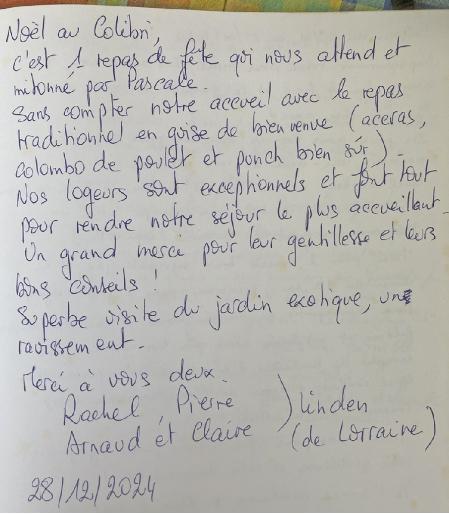 Noël au Colibri,
c'est 1 repas de fête qui nous attend et
mitonné par Pascale.
Sans compter notre accueil avec le repas
traditionnel en guise de bienvenue (aceras,
colombo de poulet et punch bien sûr).
Nos logeurs sont exceptionnels et font tout
pour rendre notre séjour le plus accueillant.
Un grand merci pour leur gentillesse et leurs
bons conseils !
Superbe visite du jardin exotique, un
ravissement.
Merci à vous deux.
Rachel, Pierre
Arnaud et Claire ) Linden
(de Lorraine)
28/12/2024